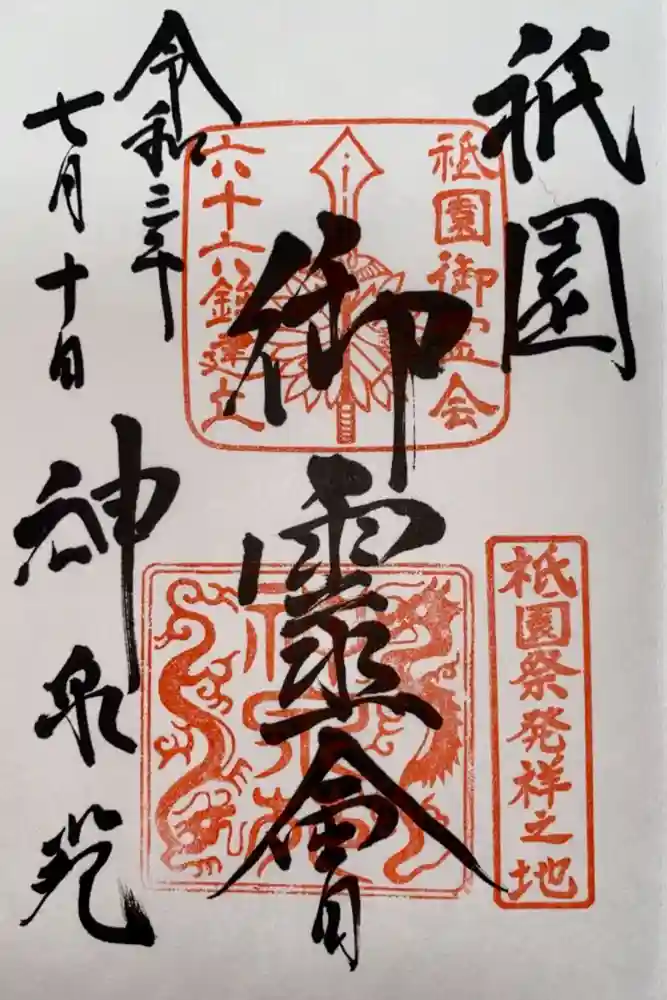 祇園
御靈會
令和三年
七月十日
神泉苑
祇園御霊会
六十六鉾建立
祇園祭発祥之地
神泉苑